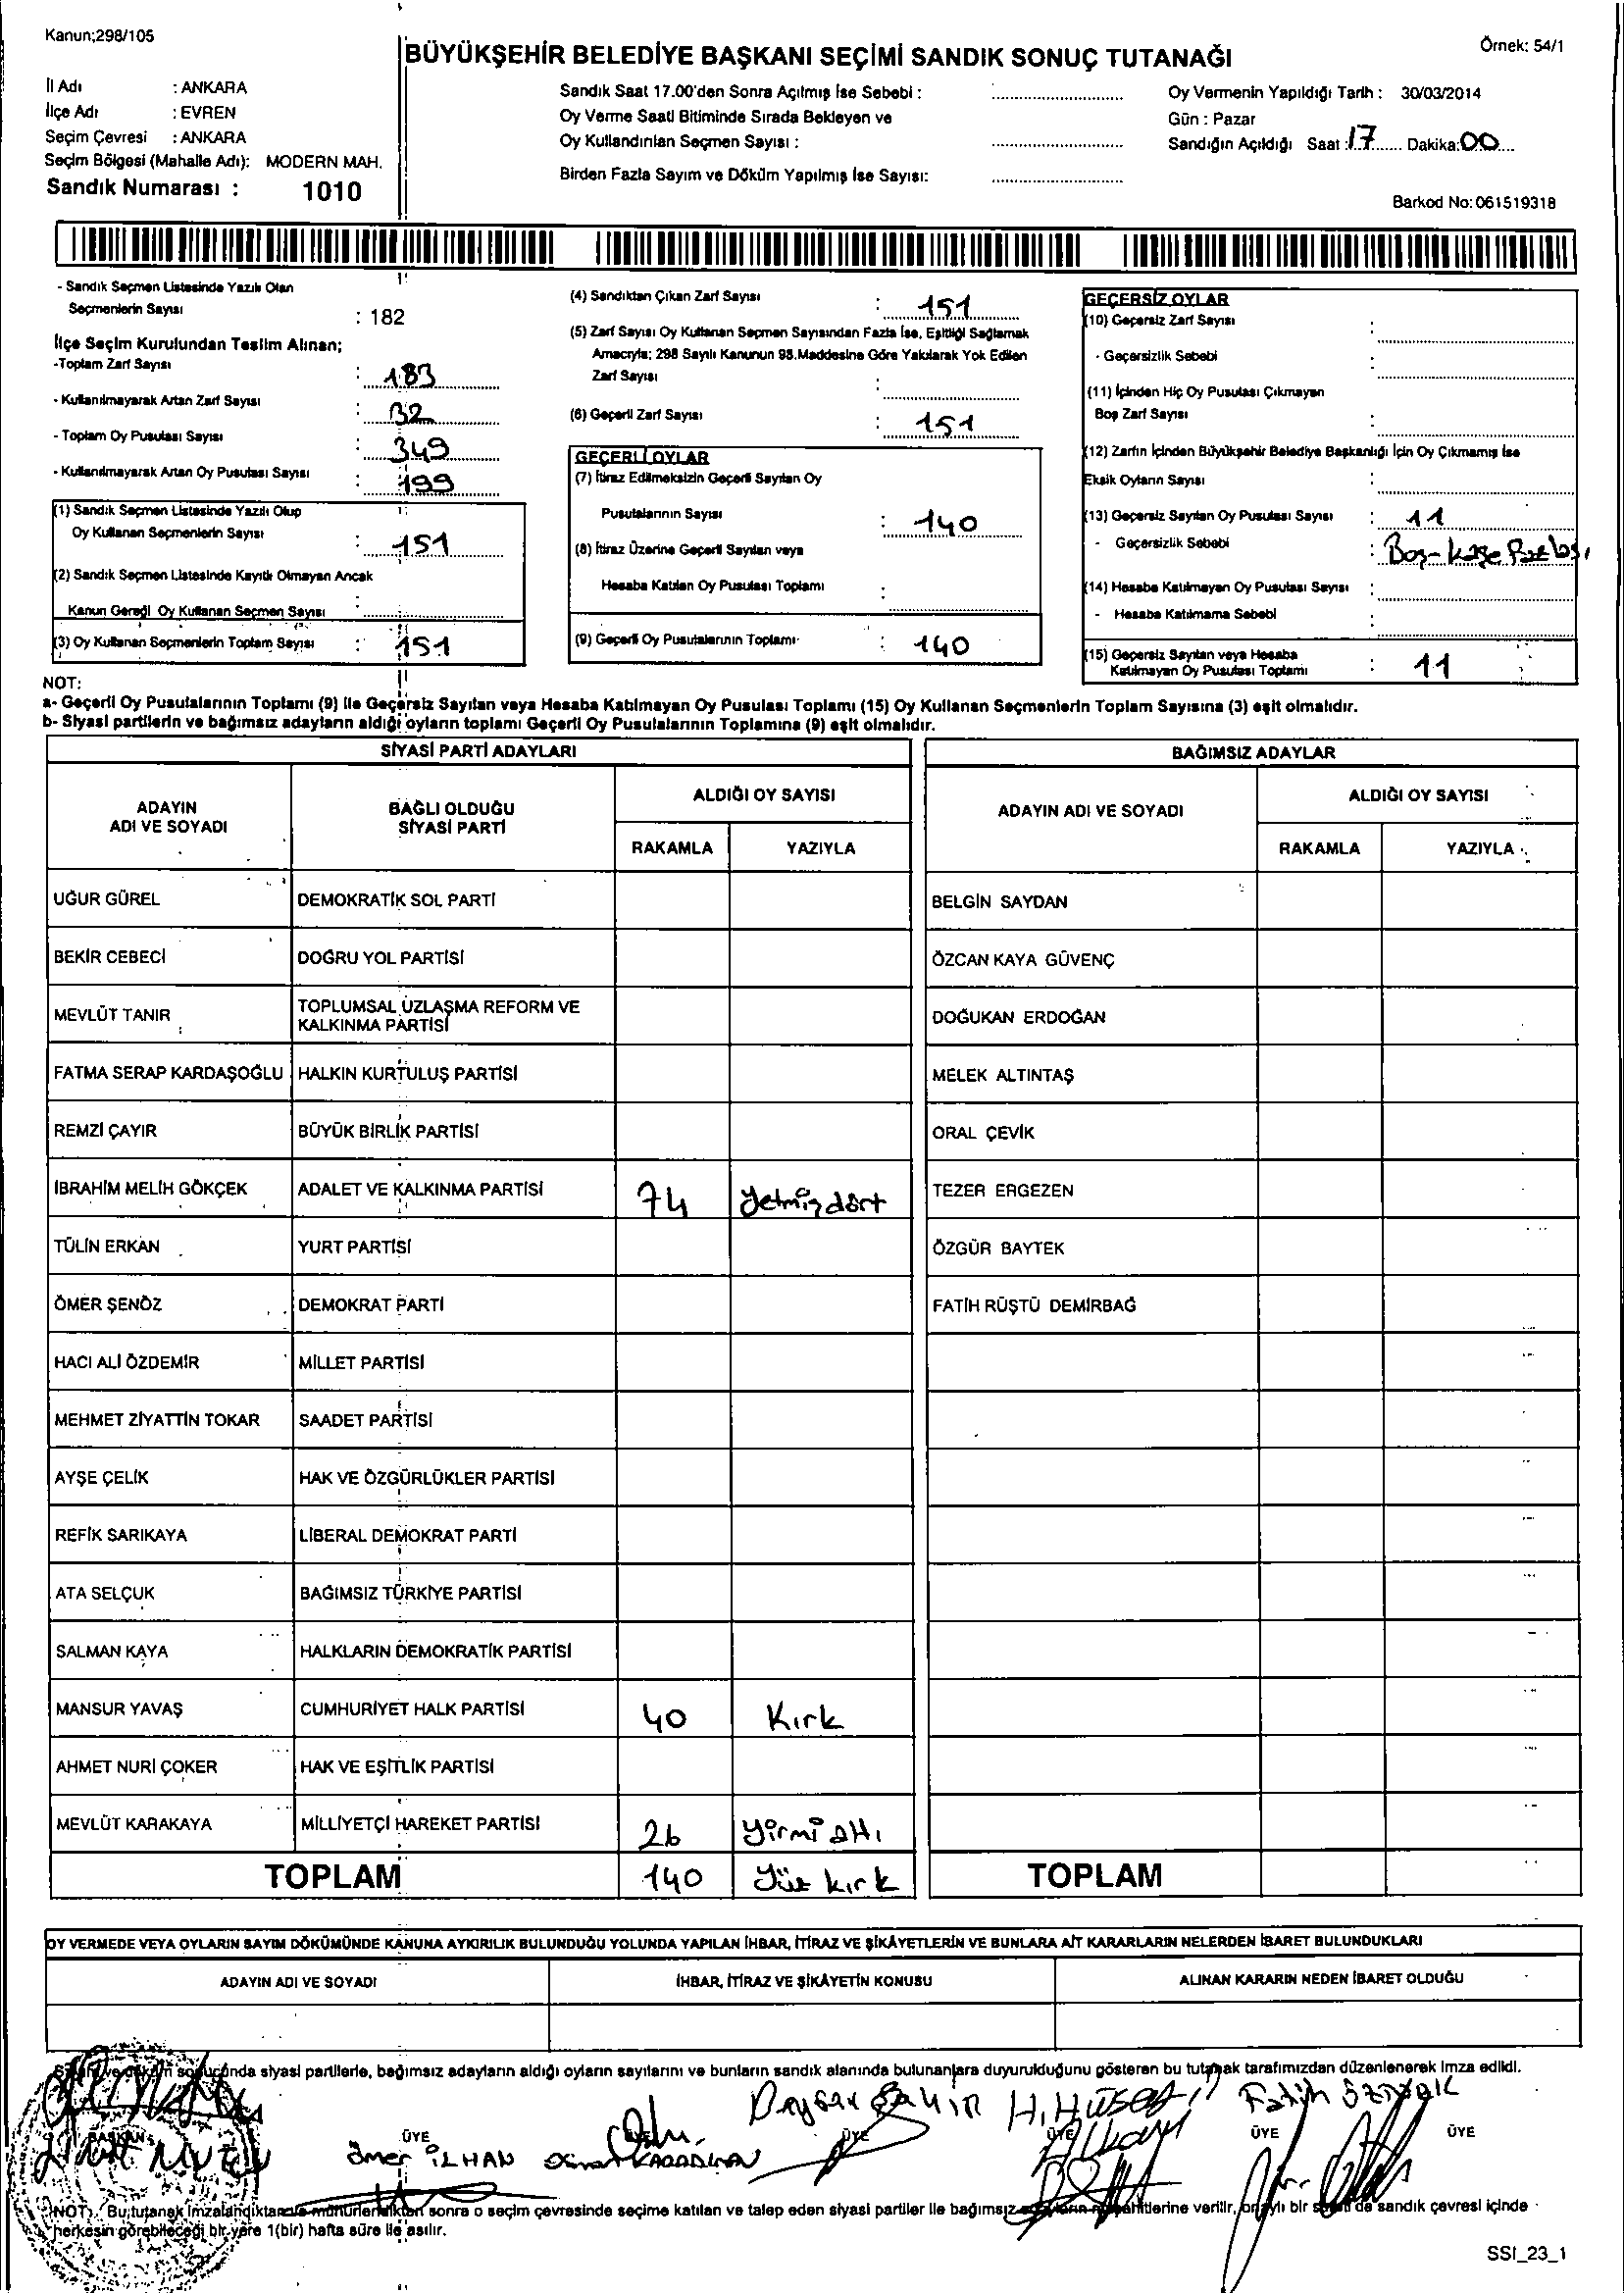 Kanun;298/105
BÜYÜKŞEHİR BELEDİYE BAŞKANI SEÇİMİ SANDIK SONUÇ TUTANAĞI
Örnek: 54/1
İl Adı : ANKARA
İlçe Adı : EVREN
Seçim Çevresi : ANKARA
Seçim Bölgesi (Mahalle Adı): MODERN MAH.
Sandık Numarası : 1010
Sandık Saat 17.00'den Sonra Açılmış İse Sebebi :
Oy Verme Saati Bitiminde Sırada Bekleyen ve
Oy Kullandırılan Seçmen Sayısı :
Birden Fazla Sayım ve Döküm Yapılmış İse Sayısı:
Oy Vermenin Yapıldığı Tarih : 30/03/2014
Gün : Pazar
Sandığın Açıldığı Saat : 17 Dakika: 00
Barkod No: 061519318
- Sandık Seçmen Listesinde Yazılı Olan
Seçmenlerin Sayısı : 182
İlçe Seçim Kurulundan Teslim Alınan;
-Toplam Zarf Sayısı : 183
- Kullanılmayarak Artan Zarf Sayısı : 32
- Toplam Oy Pusulası Sayısı : 349
- Kullanılmayarak Artan Oy Pusulası Sayısı : 199
(1) Sandık Seçmen Listesinde Yazılı Olup
Oy Kullanan Seçmenlerin Sayısı : 151
(2) Sandık Seçmen Listesinde Kayıtlı Olmayan Ancak
Kanun Gereği Oy Kullanan Seçmen Sayısı :
(3) Oy Kullanan Seçmenlerin Toplam Sayısı : 151
(4) Sandıktan Çıkan Zarf Sayısı : 151
(5) Zarf Sayısı Oy Kullanan Seçmen Sayısından Fazla İse, Eşitliği Sağlamak
Amacıyla; 298 Sayılı Kanunun 98.Maddesine Göre Yakılarak Yok Edilen
Zarf Sayısı :
(6) Geçerli Zarf Sayısı : 151
GEÇERLİ OYLAR
(7) İtiraz Edilmeksizin Geçerli Sayılan Oy
Pusulalarının Sayısı : 140
(8) İtiraz Üzerine Geçerli Sayılan veya
Hesaba Katılan Oy Pusulası Toplamı :
(9) Geçerli Oy Pusulalarının Toplamı : 140
GEÇERSİZ OYLAR
(10) Geçersiz Zarf Sayısı :
- Geçersizlik Sebebi :
(11) İçinden Hiç Oy Pusulası Çıkmayan
Boş Zarf Sayısı :
(12) Zarfın İçinden Büyükşehir Belediye Başkanlığı İçin Oy Çıkmamış İse
Eksik Oyların Sayısı :
(13) Geçersiz Sayılan Oy Pusulası Sayısı : 11
- Geçersizlik Sebebi : Boş-kaşe fazlası
(14) Hesaba Katılmayan Oy Pusulası Sayısı :
- Hesaba Katılmama Sebebi
(15) Geçersiz Sayılan veya Hesaba
Katılmayan Oy Pusulası Toplamı : 11
NOT:
a- Geçerli Oy Pusulalarının Toplamı (9) ile Geçersiz Sayılan veya Hesaba Katılmayan Oy Pusulası Toplamı (15) Oy Kullanan Seçmenlerin Toplam Sayısına (3) eşit olmalıdır.
b- Siyasi partilerin ve bağımsız adayların aldığı oyların toplamı Geçerli Oy Pusulalarının Toplamına (9) eşit olmalıdır.
SİYASİ PARTİ ADAYLARI
ADAYIN ADI VE SOYADI
BAĞLI OLDUĞU SİYASİ PARTİ
ALDIĞI OY SAYISI
RAKAMLA YAZIYLA
UĞUR GÜREL DEMOKRATİK SOL PARTİ
BEKİR CEBECİ DOĞRU YOL PARTİSİ
MEVLÜT TANIR TOPLUMSAL UZLAŞMA REFORM VE
KALKINMA PARTİSİ
FATMA SERAP KARDAŞOĞLU HALKIN KURTULUŞ PARTİSİ
REMZİ ÇAYIR BÜYÜK BİRLİK PARTİSİ
İBRAHİM MELİH GÖKÇEK ADALET VE KALKINMA PARTİSİ 74 Yetmiş dört
TÜLİN ERKAN YURT PARTİSİ
ÖMER ŞENÖZ DEMOKRAT PARTİ
HACI ALİ ÖZDEMİR MİLLET PARTİSİ
MEHMET ZİYATTİN TOKAR SAADET PARTİSİ
AYŞE ÇELİK HAK VE ÖZGÜRLÜKLER PARTİSİ
REFİK SARIKAYA LİBERAL DEMOKRAT PARTİ
ATA SELÇUK BAĞIMSIZ TÜRKİYE PARTİSİ
SALMAN KAYA HALKLARIN DEMOKRATİK PARTİSİ
MANSUR YAVAŞ CUMHURİYET HALK PARTİSİ 40 Kırk
AHMET NURİ ÇOKER HAK VE EŞİTLİK PARTİSİ
MEVLÜT KARAKAYA MİLLİYETÇİ HAREKET PARTİSİ 26 Yirmi altı
TOPLAM 140 Yüz kırk
BAĞIMSIZ ADAYLAR
ADAYIN ADI VE SOYADI
ALDIĞI OY SAYISI
RAKAMLA YAZIYLA
BELGİN SAYDAN
ÖZCAN KAYA GÜVENÇ
DOĞUKAN ERDOĞAN
MELEK ALTINTAŞ
ORAL ÇEVİK
TEZER ERGEZEN
ÖZGÜR BAYTEK
FATİH RÜŞTÜ DEMİRBAĞ
TOPLAM
OY VERMEDE VEYA OYLARIN SAYIM DÖKÜMÜNDE KANUNA AYKIRILIK BULUNDUĞU YOLUNDA YAPILAN İHBAR, İTİRAZ VE ŞİKÂYETLERİN VE BUNLARA AİT KARARLARIN NELERDEN İBARET BULUNDUKLARI
ADAYIN ADI VE SOYADI
İHBAR, İTİRAZ VE ŞİKÂYETİN KONUSU
ALINAN KARARIN NEDEN İBARET OLDUĞU
sonucunda siyasi partilerle, bağımsız adayların aldığı oyların sayılarını ve bunların sandık alanında bulunanlara duyurulduğunu gösteren bu tutanak tarafımızdan düzenlenerek imza edildi.
Fatih
BAŞKAN ÜYE ÜYE ÜYE ÜYE ÜYE
Ömer İLHAN
NOT: Bu tutanak imzalandıktan ve mühürlendikten sonra o seçim çevresinde seçime katılan ve talep eden siyasi partiler ile bağımsız adayların müşahitlerine verilir, onaylı bir sureti de sandık çevresi içinde
herkesin görebileceği bir yere 1(bir) hafta süre ile asılır.
SSI_23_1